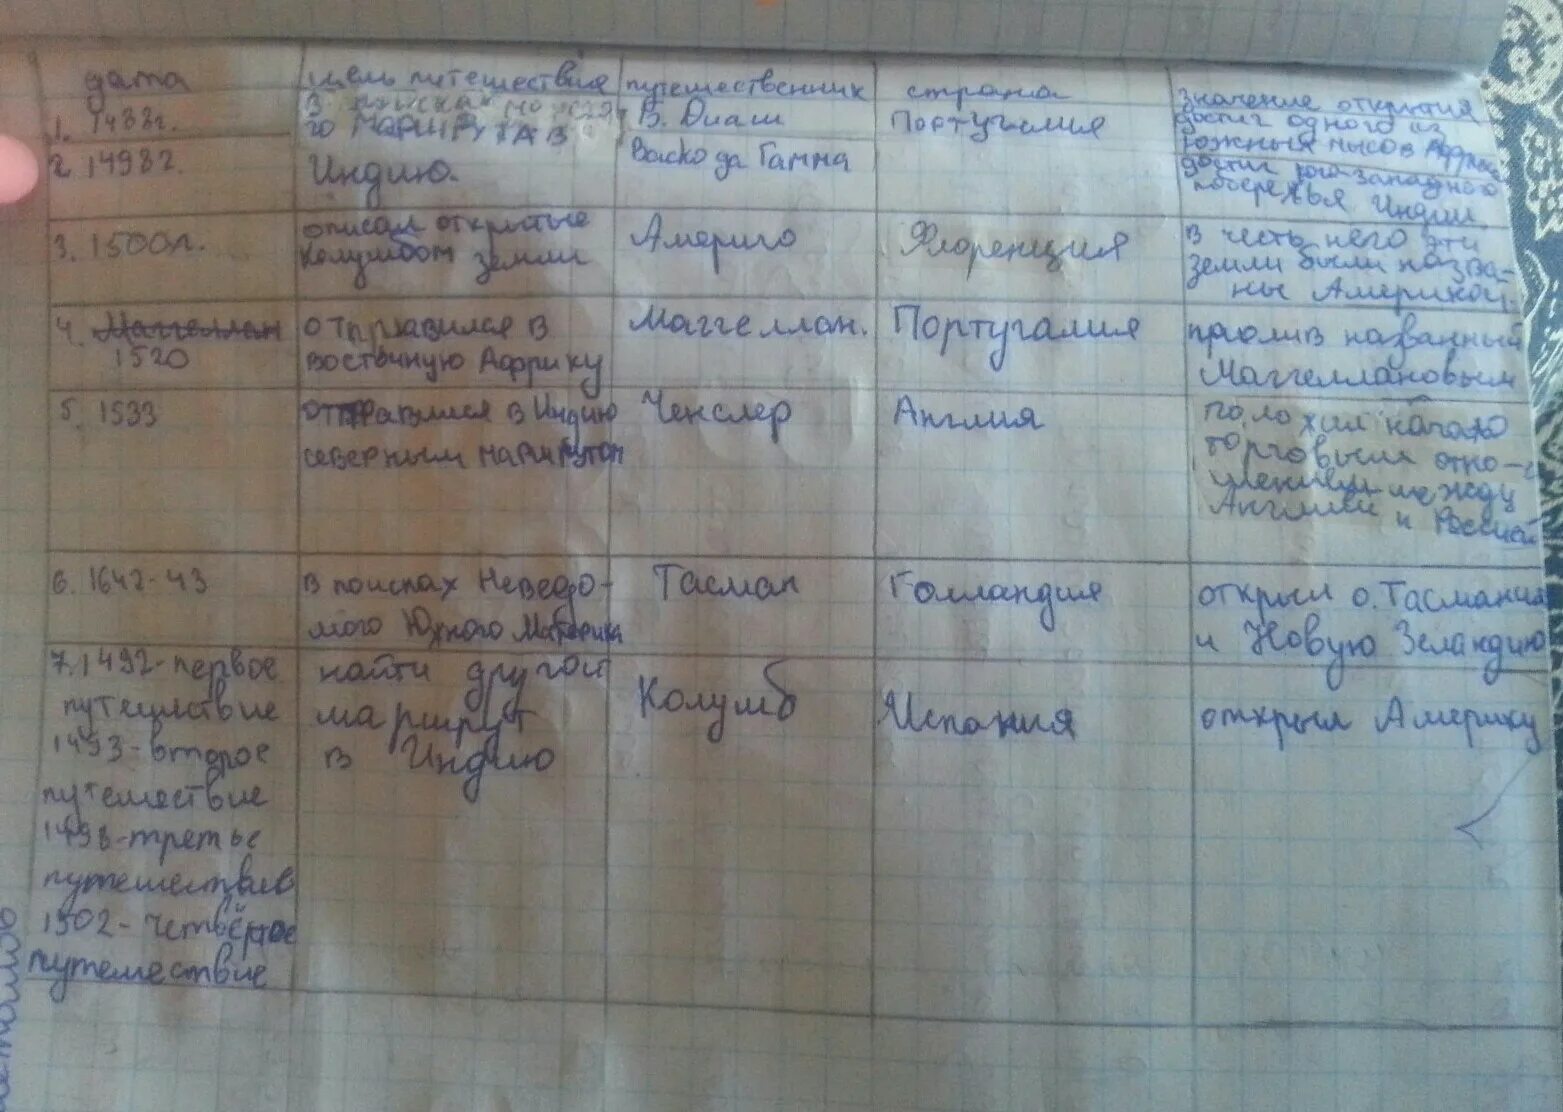 дата
цель путешествия
путешественник
страна
значение открытия
1. 1488г.
го маршрута в
В. Диаш
Португалия
достиг одного из
южных мысов Африки
2. 1498г.
Индию.
Васко да Гамма
достиг юго западного
побережья Индии
3. 1500г.
описал открытые
Колумбом земли
Америго
Флоренция
в честь него эти
земли были назва-
ны Америкой.
4. Маггеллан
1520
отправился в
восточную Африку
Маггеллан.
Португалия
пролив названный
Маггеллановым
5. 1533
отправился в Индию
северным маршрутом
Ченслер
Англия
положил начало
торговым отно-
шениям между
Англией и Россией
6. 1642-43
в поисках Неведо-
мого Южного Материка
Тасман
Голландия
открыл о. Тасмания
и Новую Зеландию
7. 1492-первое
путешествие
1493-второе
путешествие
1498-третье
путешествие
1502-четвёртое
путешествие
найти другой
маршрут
в Индию
Колумб
Испания
открыл Америку